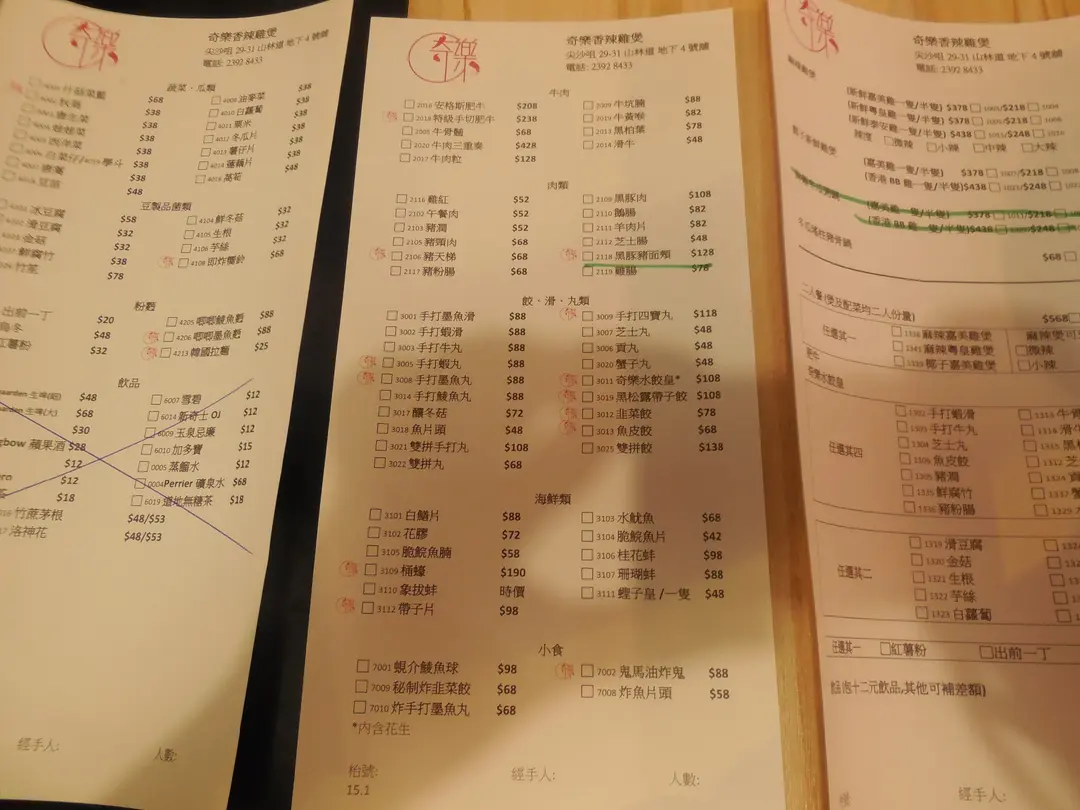 奇樂
奇樂香辣雞煲
尖沙咀 29-31 山林道 地下 4 號舖
電話: 2392 8433
蔬菜、瓜類
什菇菜籃 $68
$38
$38
唐生菜 $38
娃娃菜 $38
西洋菜 $38
白菜仔/4019學斗 $38
$38
豆苗 $48
4008 油麥菜 $38
4010 白蘿蔔 $38
4011 粟米 $38
4012 冬瓜片 $38
4013 薯仔片 $38
4014 蓮藕片 $38
4016 萵筍 $48
豆製品菌類
冰豆腐 $58
滑豆腐 $32
金菇 $32
鮮腐竹 $38
竹笙 $78
4104 鮮冬菇 $32
4105 生根 $32
4106 芋絲 $32
4108 即炸響鈴 $68
粉麵
出前一丁 $20
烏冬 $48
紅薯粉 $32
4205 唧唧鯪魚麪 $88
4206 唧唧墨魚麪 $88
4213 韓國拉麵 $25
飲品
生啤(細) $48
生啤(大) $68
$30
蘋果酒 $28
$12
$12
茶 $18
竹蔗茅根 $48/$53
洛神花 $48/$53
6007 雪碧 $12
6014 新奇士 OJ $12
6009 玉泉忌廉 $12
6010 加多寶 $15
0005 蒸餾水 $12
0004Perrier 礦泉水 $68
6019 道地無糖茶 $18
經手人:
人數:
奇樂
奇樂香辣雞煲
尖沙咀 29-31 山林道 地下 4 號舖
電話: 2392 8433
牛肉
2016 安格斯肥牛 $208
2018 特級手切肥牛 $238
2005 牛骨髓 $68
2020 牛肉三重奏 $428
2017 牛肉粒 $128
2009 牛坑腩 $88
2019 牛黃喉 $82
2013 黑柏葉 $78
2014 滑牛 $48
肉類
2116 雞紅 $52
2102 午餐肉 $52
2103 豬潤 $52
2105 豬頸肉 $68
2106 豬天梯 $68
2117 豬粉腸 $68
2109 黑豚肉 $108
2110 鵝腸 $82
2111 羊肉片 $82
2112 芝士腸 $48
2118 黑豚豬面頰 $128
2119 雞腸 $78
餃、滑、丸類
3001 手打墨魚滑 $88
3002 手打蝦滑 $88
3003 手打牛丸 $88
3005 手打蝦丸 $88
3008 手打墨魚丸 $88
3014 手打鯪魚丸 $88
3017 釀冬菇 $72
3018 魚片頭 $48
3021 雙拼手打丸 $108
3022 雙拼丸 $68
3009 手打四寶丸 $118
3007 芝士丸 $48
3006 貢丸 $48
3020 蟹子丸 $48
3011 奇樂水餃皇* $108
3019 黑松露帶子餃 $108
3012 韭菜餃 $78
3013 魚皮餃 $68
3025 雙拼餃 $138
海鮮類
3101 白鱔片 $88
3102 花膠 $72
3105 脆脘魚腩 $58
3109 桶蠔 $190
3110 象拔蚌 時價
3112 帶子片 $98
3103 水魷魚 $68
3104 脆脘魚片 $42
3106 桂花蚌 $98
3107 珊瑚蚌 $88
3111 蟶子皇 /一隻 $48
小食
7001 蜆介鯪魚球 $98
7009 秘制炸韭菜餃 $68
7010 炸手打墨魚丸 $68
7002 鬼馬油炸鬼 $88
7008 炸魚片頭 $58
*內含花生
枱號:
15.1
經手人:
人數:
奇樂
奇樂香辣雞煲
尖沙咀 29-31 山林道 地下 4 號舖
電話: 2392 8433
(新鮮嘉美雞一隻/半隻) $378 /$218
(新鮮粵皇雞一隻/半隻) $378 /$218
(新鮮泰安雞一隻/半隻) $438 /$248
辣度 微辣 小辣 中辣 大辣
(嘉美雞一隻/半隻) $378 /$218
(香港 BB 雞一隻/半隻)$438 /$248
(嘉美雞一隻/半隻) $378 /$218
(香港 BB 雞一隻/半隻)$438 /$248
$68
二人餐(煲及配菜均二人份量) $568
任選其一
1338 麻辣嘉美雞煲
1341 麻辣粵皇雞煲
1339 椰子嘉美雞煲
微辣
小辣
肥牛
奇樂水餃皇
任選其四
1302 手打蝦滑
1303 手打牛丸
1304 芝士丸
1306 魚皮餃
1309 豬潤
1335 鮮腐竹
1336 豬粉腸
任選其二
1319 滑豆腐
1320 金菇
1321 生根
1322 芋絲
1323 白蘿蔔
任選其一 紅薯粉 出前一丁
十二元飲品,其他可補差額)
經手人: